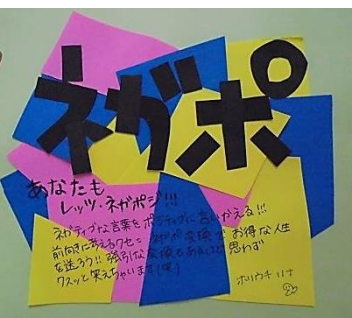 ネガポ
あなたも
レッツ・ネガポジ!!!
ネガティブな言葉をポジティブに言いかえる!!!
前向きに考えるクセ=ネガポ変換でお得な人生
を送ろう!! 強引な変換もあるけど思わず
クスッと笑えちゃいます(笑)
ホリウチ